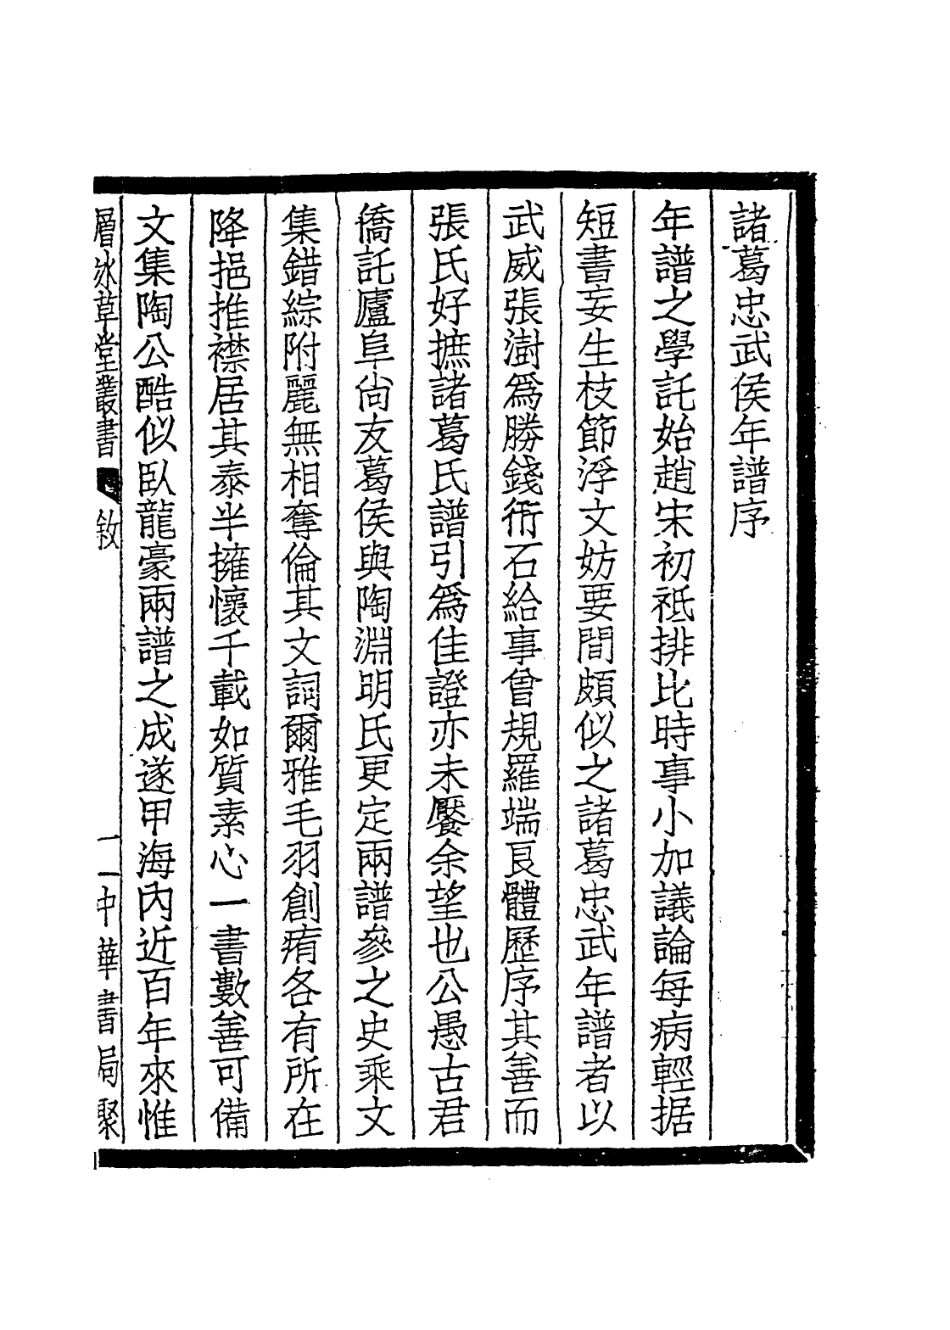 諸葛忠武侯年譜序
年譜之學託始趙宋初祗排比時事小加議論每病輕据
短書妄生枝節浮文妨要間頗似之諸葛忠武年譜者以
武威張澍爲勝錢衎石給事曾規羅端良體歷序其善而
張氏好摭諸葛氏譜引爲佳證亦未饜余望也公愚古君
僑託廬阜尙友葛侯與陶淵明氏更定兩譜參之史乘文
集錯綜附麗無相奪倫其文詞爾雅毛羽創痏各有所在
降挹推襟居其泰半擁懷千載如質素心一書數善可備
文集陶公酷似臥龍豪兩譜之成遂甲海內近百年來惟
層冰草堂叢書 敘 一 中華書局聚